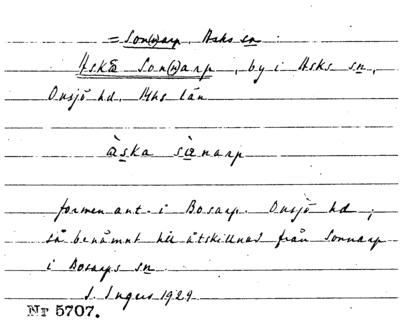 = Son(n)arp, Asks sn.
Aska Son(n)arp, by i Asks sn,
Onsjö hd. Mhs län
àska sànarp
formen ant. i Bosarp. Onsjö hd,
så benämnt till åtskillnad från Sonnarp
i Bosarps sn
S. Ingers 1929
Nr 5707.